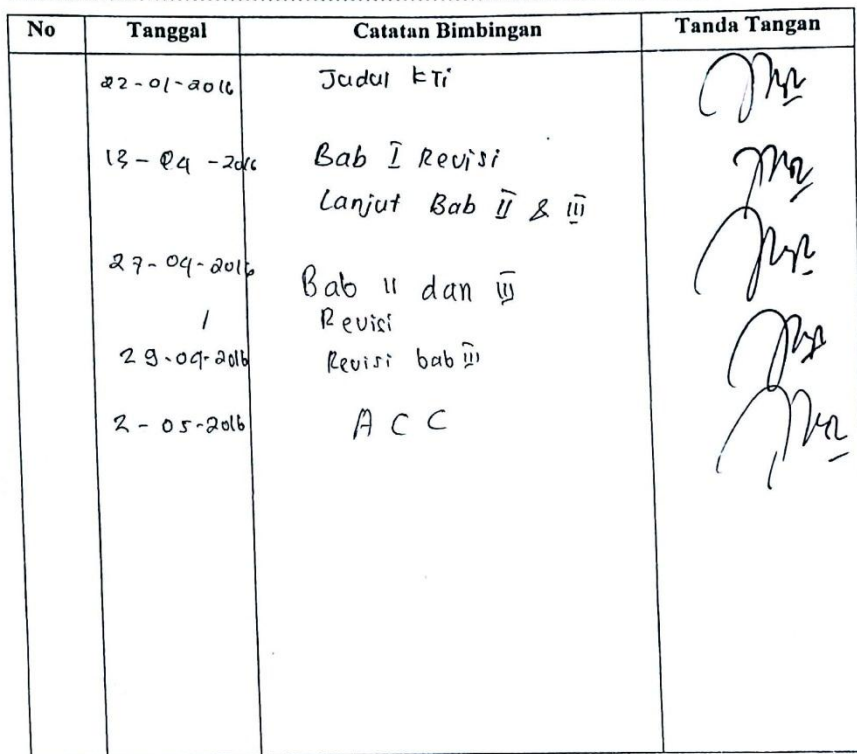 No Tanggal Catatan Bimbingan Tanda Tangan
22-01-2016 Judul KTi
13-04-2016 Bab I Revisi
Lanjut Bab II & III
27-04-2016 Bab II dan III
Revisi
29-04-2016 Revisi bab III
2-05-2016 ACC